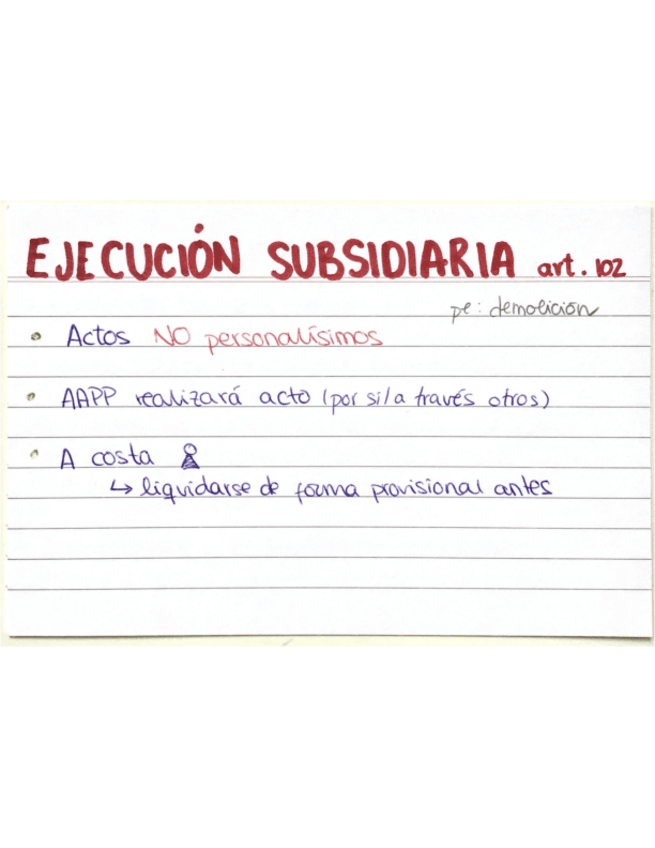 EJECUCIÓN SUBSIDIARIA art. 102
pe: demolición
• Actos NO personalísimos
• AAPP realizará acto (por sí/a través otros)
• A costa
↳ liquidarse de forma provisional antes